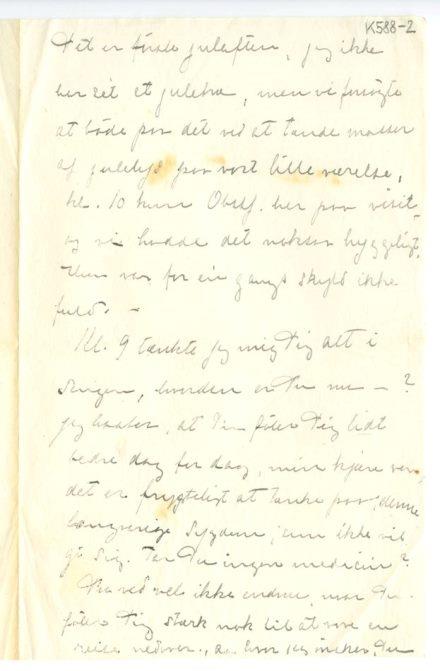 K588-2
Det er første juleaften, jeg ikke
har set et juletræ, men vi forsøgte
at bøde paa det ved at tænde masser
af julelys paa vort lille værelse,
kl. 10 kom her paa visit,
og vi havde det nokså hyggeligt,
var for en gangs skyld ikke
fuld. -
Kl. 9 tænkte jeg mig Dig alt i
Sengen, hvordan er Du nu - ?
jeg haaber, at Du føler Dig lidt
bedre dag for dag, min kjære ven,
det er frygteligt at tænke paa, denne
langvarige Sygdom, som ikke vil
gi sig. Tar Du ingen medicin?
Du ved vel ikke endnu, naar Du
føler Dig stærk nok til at
reise nedover, aa hvor jeg ønsker, Du